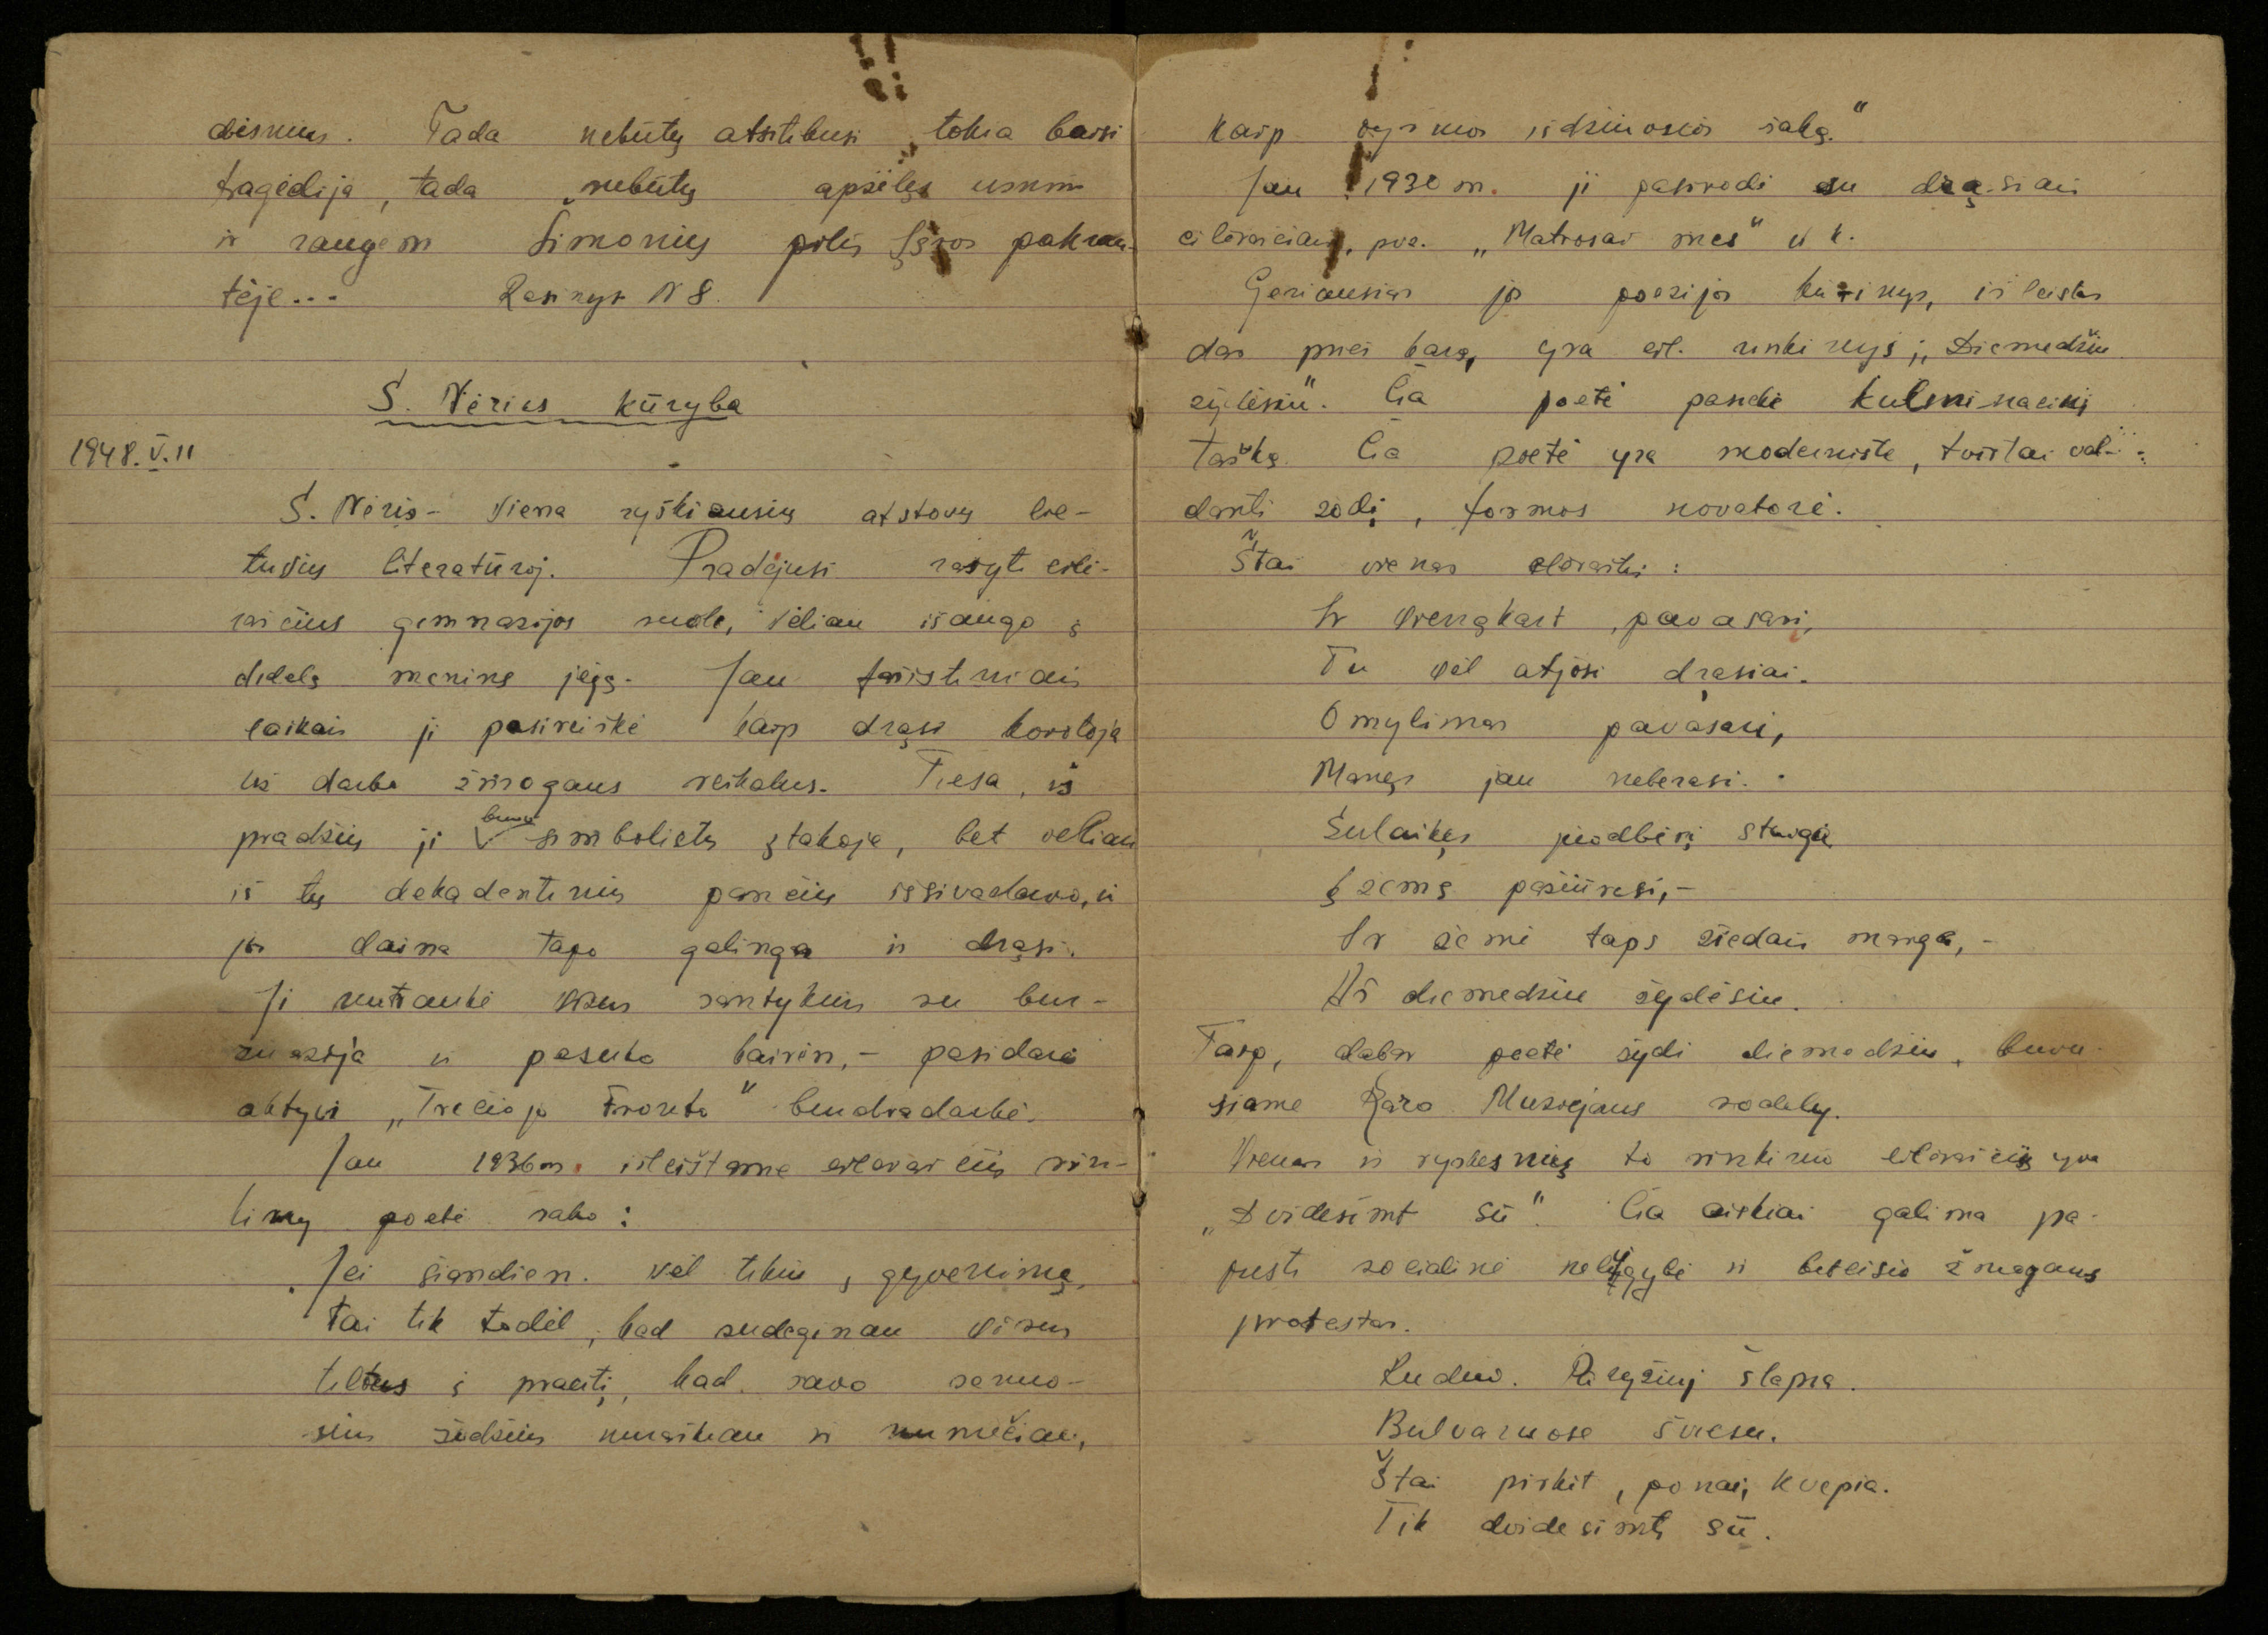 disnius. Tada nebūtų atsitikusi tokia baisi
tragėdija, tada nebūtų apžėlęs usnim
ir raugėm Simonių pilis Įsros pakran-
tėje... Rašinys N 8.
S. Nėries kūryba
1948.V.11
S. Nėris - viena ryškiausių atstovų lie-
tuvių literatūroj. Pradėjusi rašyti eilė-
raščius gimnazijos suole, vėliau išaugo į
didelę meninę jėgą. Jau fašistiniais
laikais ji pasireiškė kaip drąsi kovotoja
už darbo žmogaus reikalus. Tiesa, iš
pradžių ji buvo simbolistų įtakoje, bet vėliau
iš tų dekadentinių pančių išsivadavo, ir
jos daina tapo galinga ir drąsi.
Ji nutraukė visus santykius su bur-
žuazija ir pasuko kairėn, - pasidarė
aktyvi „Trečiojo Fronto" bendradarbė.
Jau 1936 m. išleištame eilėraščių rin-
kiny poetė sako:
Jei šiandien vėl tikiu į gyvenimą,
tai tik todėl, kad sudeginau visus
tiltus į praeitį, kad savo senuo-
sius žodžius nuraškau ir numečiau,
kaip vyšnios išdžiuosios šaką."
Jau 1930 m. ji pasirodi su drąsiais
eilėraščiais, pvz. „Matrosai mes" ir k.
Geriausias jos poezijos kūrinys, išleistas
dar prieš karą, yra eil. rinkinys „Diemedžiu
žydėsiu". Čia poetė pasiekė kulminacinį
tašką. Čia poetė yra modernistė, tvirtai val-
danti žodį, formos novatorė.
Štai vienas eilėraštis:
Ir vienąkart, pavasari,
Tu vėl atjosi drąsiai.
O mylimas pavasari,
Manęs jau neberasi.
Sulaikęs juodbėrį staiga
Į žemę pažiūrėsi, -
Ir žemė taps žiedais marga, -
Aš diemedžiu žydėsiu.
Taip, dabar poetė žydi diemedžiu, buvu-
siame Karo Muziejaus sodely.
Vienas iš ryškesnių to rinkinio eilėraščių yra
„Dvidešimt sū". Čia aiškiai galima pa-
justi socialinė nelygybė ir beteisio žmogaus
protestas.
Ruduo. Paryžiuj šlapia.
Bulvaruose šviesu.
Štai pirkit, ponai, kvepia.
Tik dvidešimtį sū.